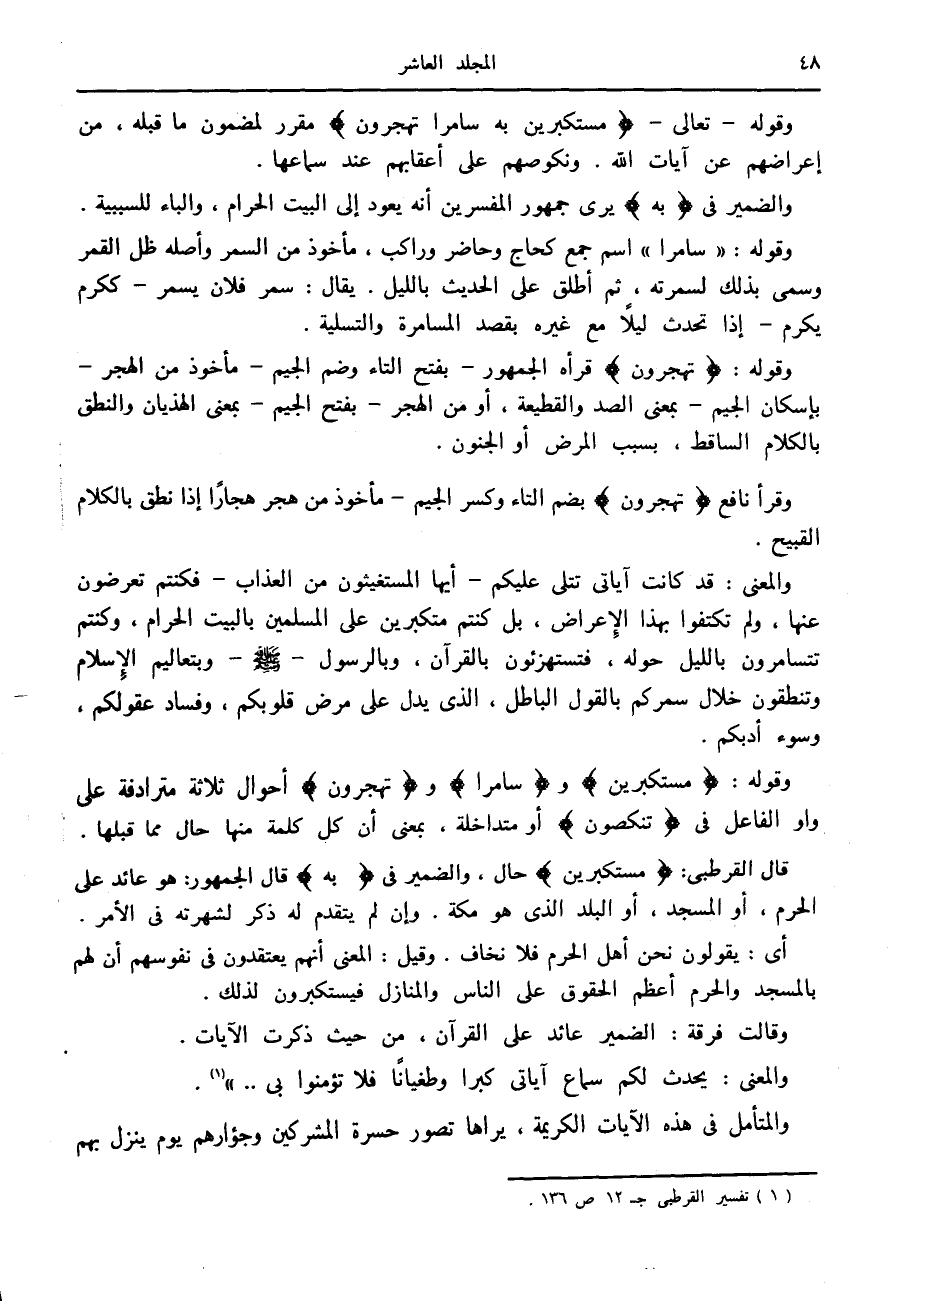 ٤٨
المجلد العاشر
وقوله – تعالى – ﴿ مستكبرين به سامرا تهجرون ﴾ مقرر لمضمون ما قبله ، من
إعراضهم عن آيات الله . ونكوصهم على أعقابهم عند سماعها .
والضمير فى ﴿ به ﴾ يرى جمهور المفسرين أنه يعود إلى البيت الحرام ، والباء للسببية .
وقوله : « سامرا » اسم جمع كحاج وحاضر وراكب ، مأخوذ من السمر وأصله ظل القمر
وسمى بذلك لسمرته ، ثم أطلق على الحديث بالليل . يقال : سمر فلان يسمر – ككرم
يكرم – إذا تحدث ليلًا مع غيره بقصد المسامرة والتسلية .
وقوله : ﴿ تهجرون ﴾ قرأه الجمهور – بفتح التاء وضم الجيم – مأخوذ من الهجر –
بإسكان الجيم – بمعنى الصد والقطيعة ، أو من الهجر – بفتح الجيم – بمعنى الهذيان والنطق
بالكلام الساقط ، بسبب المرض أو الجنون .
وقرأ نافع ﴿ تهجرون ﴾ بضم التاء وكسر الجيم – مأخوذ من هجر هجارًا إذا نطق بالكلام
القبيح .
والمعنى : قد كانت آياتى تتلى عليكم – أيها المستغيثون من العذاب – فكنتم تعرضون
عنها ، ولم تكتفوا بهذا الإعراض ، بل كنتم متكبرين على المسلمين بالبيت الحرام ، وكنتم
تتسامرون بالليل حوله ، فتستهزئون بالقرآن ، وبالرسول – ﷺ – وبتعاليم الإسلام
وتنطقون خلال سمركم بالقول الباطل ، الذى يدل على مرض قلوبكم ، وفساد عقولكم ،
وسوء أدبكم .
وقوله : ﴿ مستكبرين ﴾ و ﴿ سامرا ﴾ و ﴿ تهجرون ﴾ أحوال ثلاثة مترادفة على
واو الفاعل فى ﴿ تنكصون ﴾ أو متداخلة ، بمعنى أن كل كلمة منها حال مما قبلها .
قال القرطبى: ﴿ مستكبرين ﴾ حال ، والضمير فى ﴿ به ﴾ قال الجمهور: هو عائد على
الحرم ، أو المسجد ، أو البلد الذى هو مكة . وإن لم يتقدم له ذكر لشهرته فى الأمر .
أى : يقولون نحن أهل الحرم فلا نخاف . وقيل : المعنى أنهم يعتقدون فى نفوسهم أن لهم
بالمسجد والحرم أعظم الحقوق على الناس والمنازل فيستكبرون لذلك .
وقالت فرقة : الضمير عائد على القرآن ، من حيث ذكرت الآيات .
والمعنى : يحدث لكم سماع آياتى كبرا وطغيانًا فلا تؤمنوا بى .. »(١) .
والمتأمل فى هذه الآيات الكريمة ، يراها تصور حسرة المشركين وجؤارهم يوم ينزل بهم
( ١ ) تفسير القرطبى جـ ١٢ ص ١٣٦ .